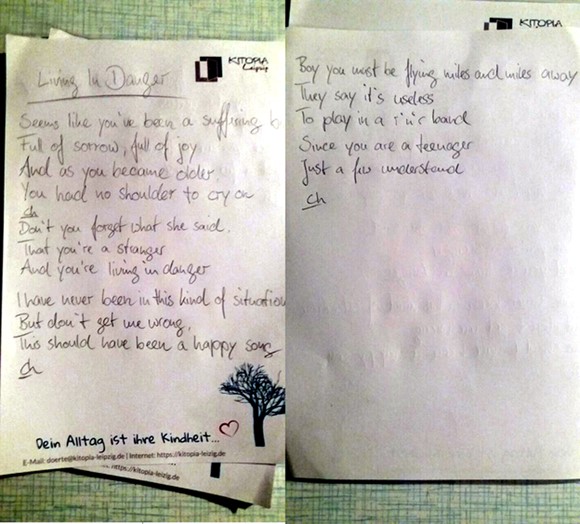 KITOPIA
Leipzig
Living In Danger
Seems like you've been a suffering b
Full of sorrow, full of joy
And as you became older
You had no shoulder to cry on
ch
Don't you forget what she said.
That you're a stranger
And you're living in danger
I have never been in this kind of situation
But don't get me wrong,
This should have been a happy song
ch
Dein Alltag ist ihre Kindheit...
E-Mail: doerte@kitopia-leipzig.de | Internet: https://kitopia-leizig.de
https://kitopia-leizig.de
KITOPIA
Boy you must be flying miles and miles away
They say it's useless
To play in a r'n'r band
Since you are a teenager
Just a few understand
ch